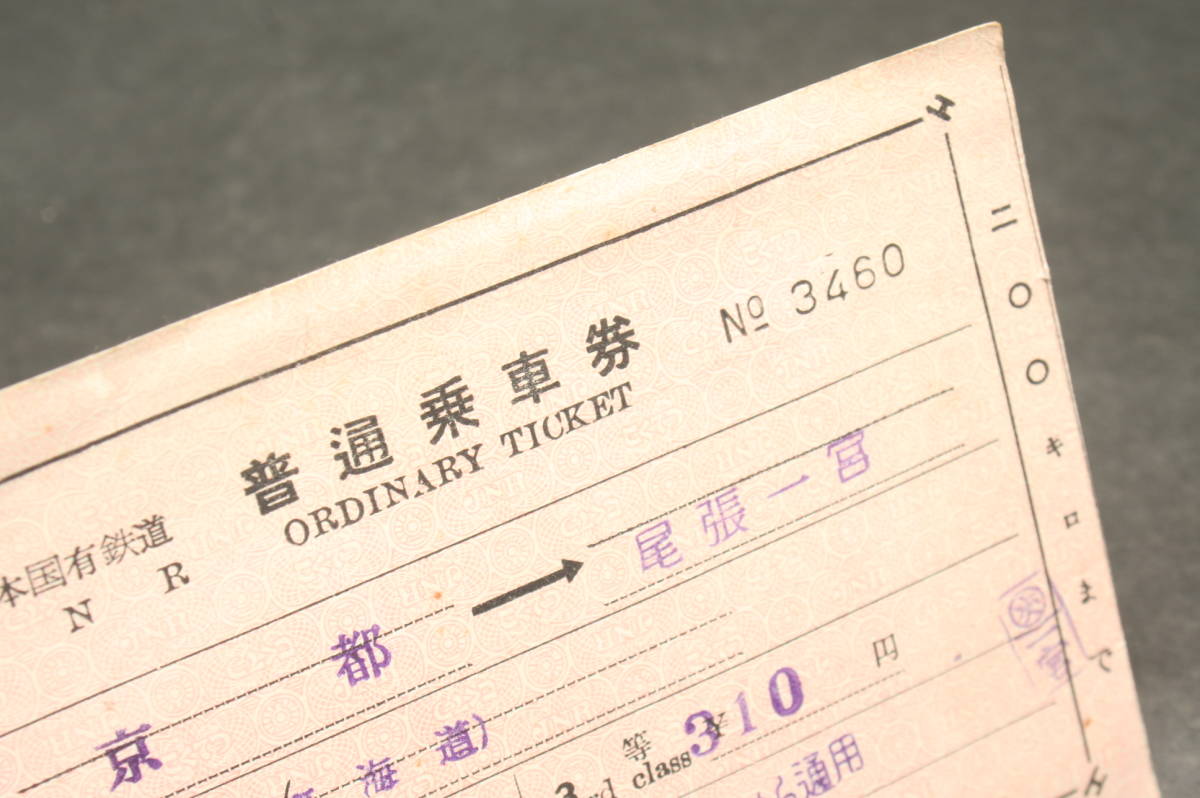 二〇〇キロまで
No 3460
普通乗車券
ORDINARY TICKET
本国有鉄道
N R
京都 → 尾張一宮
海道)
3rd class 等 ¥310 円
ら通用